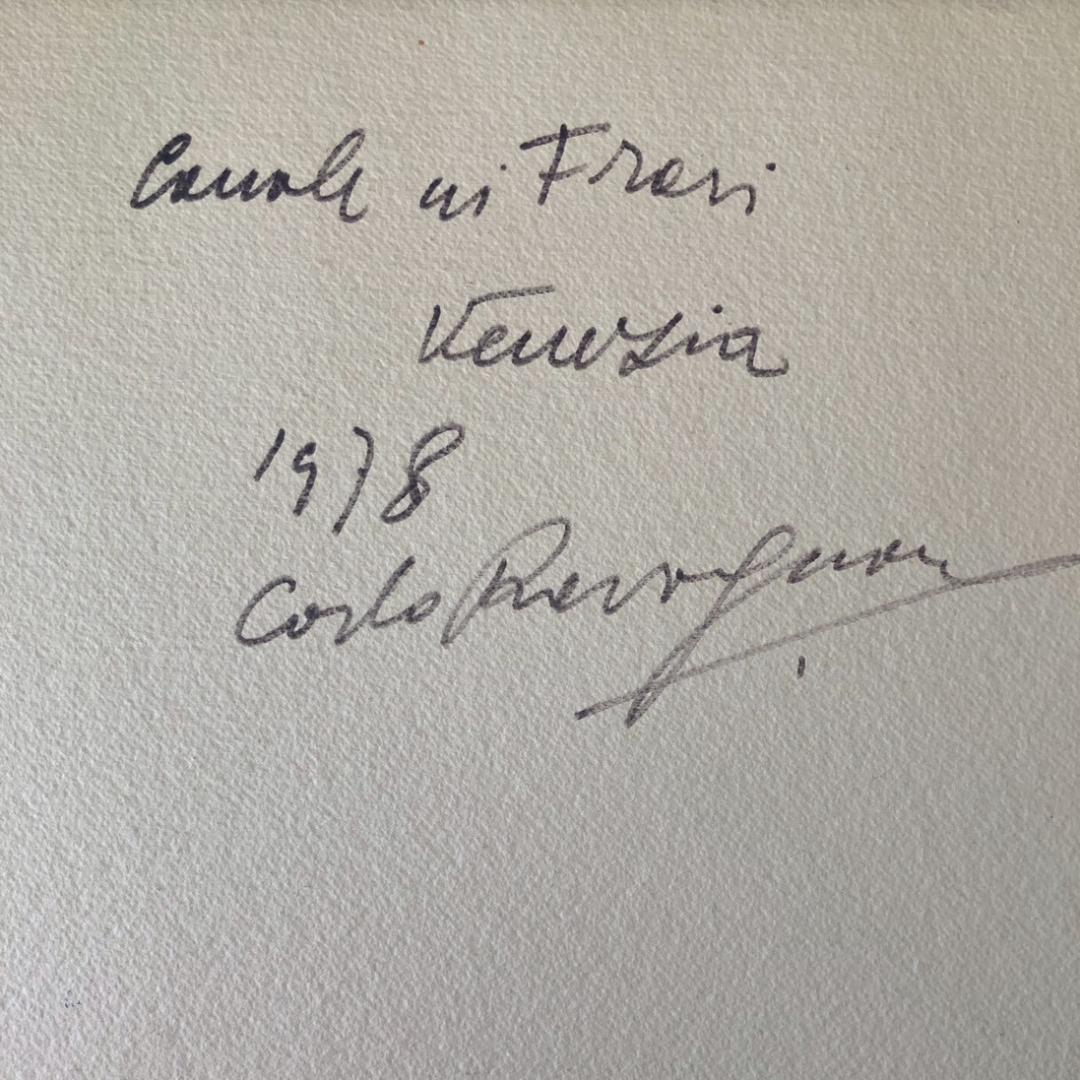 Canale ai Frari
Venezia
1978
Carlo Ravagnan